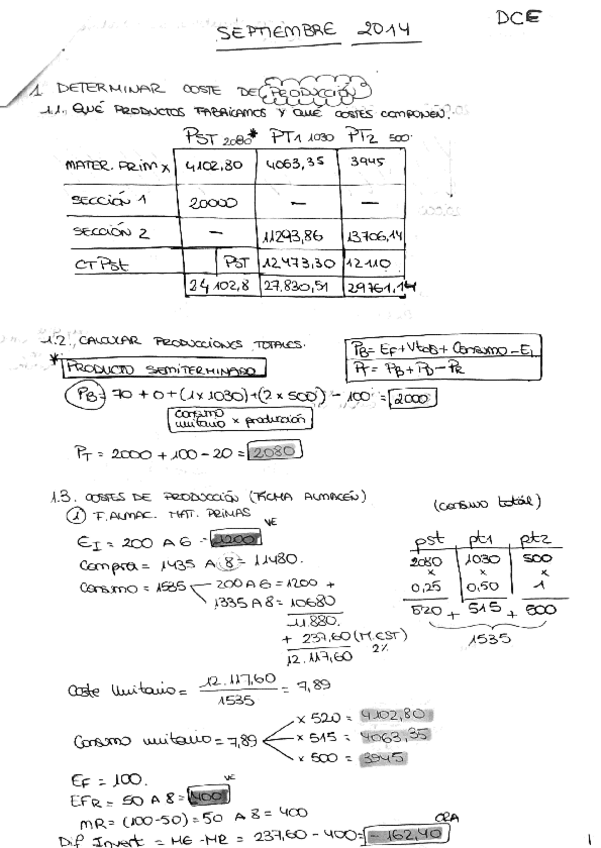 DCE
SEPTIEMBRE 2014
1 DETERMINAR COSTE DE PRODUCCIÓN
1.1. QUÉ PRODUCTOS FABRICAMOS Y QUÉ COSTES COMPONEN.
PST 2080* PT1 1030 PT2 500
MATER. PRIM X 4102,80 4063,35 3945
SECCIÓN 1 20000 — —
SECCIÓN 2 — 11293,86 13706,14
CT PSt PST 12473,30 12110
24102,8 27.830,51 29761,14
1.2. CALCULAR PRODUCCIONES TOTALES.
PB = EF + VtoB + Consumo - EI
PT = PB + PD - PR
* PRODUCTO SEMITERMINADO
PB = 70 + 0 + (1 x 1030) + (2 x 500) - 100 = 2000
consumo unitario x producción
PT = 2000 + 100 - 20 = 2080
1.3. COSTES DE PRODUCCIÓN (FICHA ALMACÉN)
(consumo total)
1 F. ALMAC. MAT. PRIMAS
VE
EI = 200 A 6 = 1200
pst pt1 pt2
Compra = 1435 A 8 = 11480.
2080 1030 500
x x x
Consumo = 1535 200 A 6 = 1200 +
0,25 0,50 1
1335 A 8 = 10680
520 + 515 + 500
11.880.
1535
+ 237,60 (M.CST)
2%
12.117,60
Coste Unitario = 12.117,60 / 1535 = 7,89
x 520 = 4102,80
Consumo unitario = 7,89 x 515 = 4063,35
x 500 = 3945
EF = 100.
VE
EFR = 50 A 8 = 400
MR = (100-50) = 50 A 8 = 400
Dif Invent = ME - MR = 237,60 - 400 = -162,40